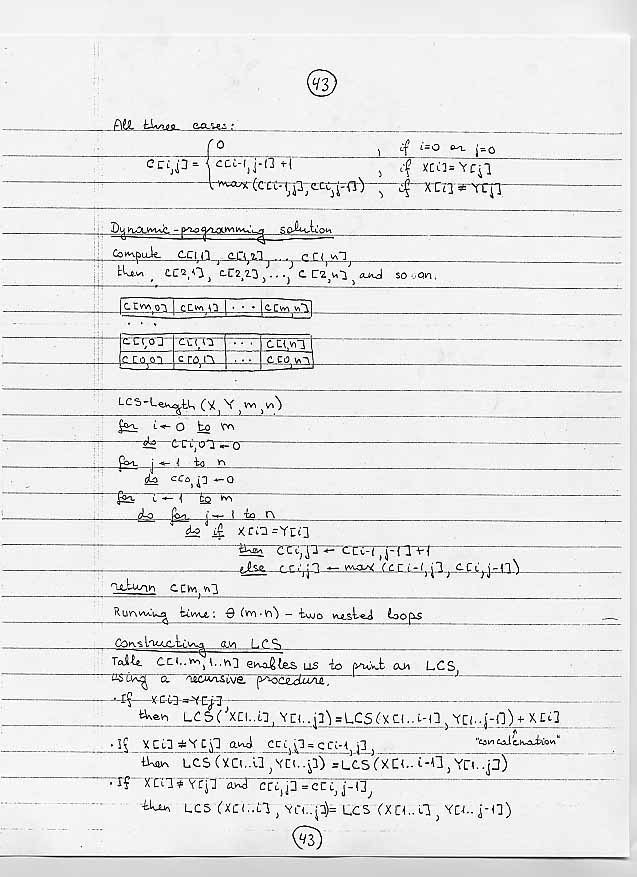 43
All three cases:
0 , if i=0 or j=0
c[i,j] = { c[i-1,j-1]+1 , if X[i]=Y[j]
max(c[i-1,j], c[i,j-1]) , if X[i]≠Y[j]
Dynamic-programming solution
Compute c[1,1], c[1,2], ..., c[1,n],
then, c[2,1], c[2,2], ..., c[2,n], and so on.
c[m,0] c[m,1] ... c[m,n]
...
c[1,0] c[1,1] ... c[1,n]
c[0,0] c[0,1] ... c[0,n]
LCS-Length(X,Y,m,n)
for i←0 to m
do c[i,0]←0
for j←1 to n
do c[0,j]←0
for i←1 to m
do for j←1 to n
do if X[i]=Y[i]
then c[i,j]←c[i-1,j-1]+1
else c[i,j]←max(c[i-1,j], c[i,j-1])
return c[m,n]
Running time: Θ(m·n) – two nested loops
Constructing an LCS
Table c[1..m,1..n] enables us to print an LCS,
using a recursive procedure.
· If X[i]=Y[j],
then LCS(X[1..i], Y[1..j])=LCS(X[1..i-1], Y[1..j-1])+X[i]
"concatenation"
· If X[i]≠Y[j] and c[i,j]=c[i-1,j],
then LCS(X[1..i], Y[1..j])=LCS(X[1..i-1], Y[1..j])
· If X[i]≠Y[j] and c[i,j]=c[i,j-1],
then LCS(X[1..i], Y[1..j])=LCS(X[1..i], Y[1..j-1])
43